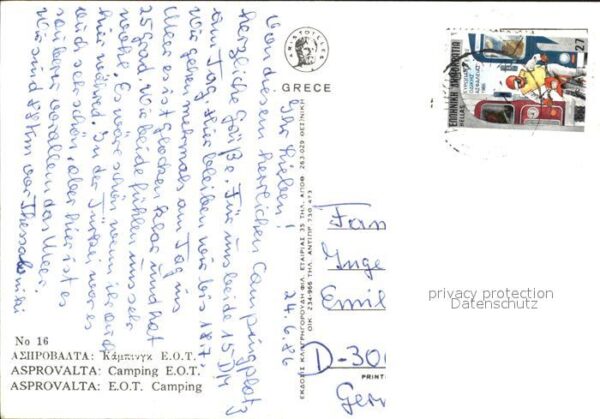 24.6.86
Ihr Lieben!
Von diesem herrlichen Campingplatz
herzliche Grüße. Für uns beide 15.- DM
am Tag. Hier bleiben wir bis 18.7.
Wir gehen mehrmals am Tag ins
Meer es ist glocken klar und hat
25 grad. Wir beide fühlen uns sehr
wohl. Es wär schön wenn ihr auch
hier währed. In der Türkei war es
auch sehr schön, aber hier ist es
sauberer vor allem das Meer.
Wir sind 88 km vor Thessaloniki
No 16
ΑΣΠΡΟΒΑΛΤΑ: Κάμπινγκ Ε.Ο.Τ.
ASPROVALTA: Camping E.O.T.
ASPROVALTA: E.O.T. Camping
ARISTOTELES
GREECE
ΕΚΔΟΣΙΣ ΚΑΛΛΙΓΡΗΓΟΡΟΥΔΗ ΦΙΛ. ΕΤΑΙΡΙΑΣ 35 ΤΗΛ. ΑΠΟΘ. 263.029 ΘΕΣ/ΝΙΚΗ
ΟΙΚ. 234-966 ΤΗΛ. ΑΝΤΙΠΡ. 730.473
PRINT
ΕΛΛΗΝΙΚΗ ΔΗΜΟΚΡΑΤΙΑ
HELLAS
27
Fam
Inge
Emil
D-300
Ger
privacy protection
Datenschutz